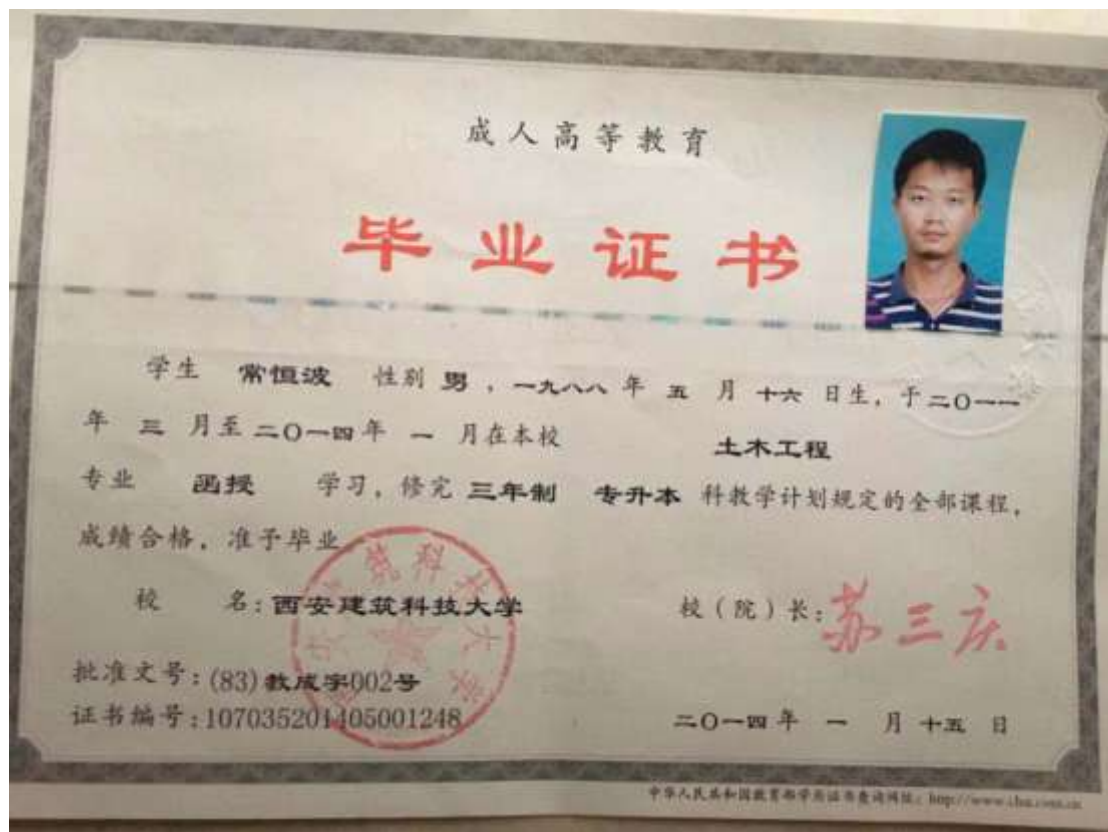 成人高等教育
毕业证书
学生 常恒波 性别 男，一九八八 年 五 月 十六 日生，于二〇一一
年 三 月至 二〇一四年 一 月在本校 土木工程
专业 函授 学习，修完 三年制 专升本 科教学计划规定的全部课程，
成绩合格，准予毕业
校 名：西安建筑科技大学
校（院）长：苏三庆
批准文号：(83)教成字002号
证书编号：107035201405001248
二〇一四年 一 月 十五 日
中华人民共和国教育部学历证书查询网址：http://www.chsi.com.cn